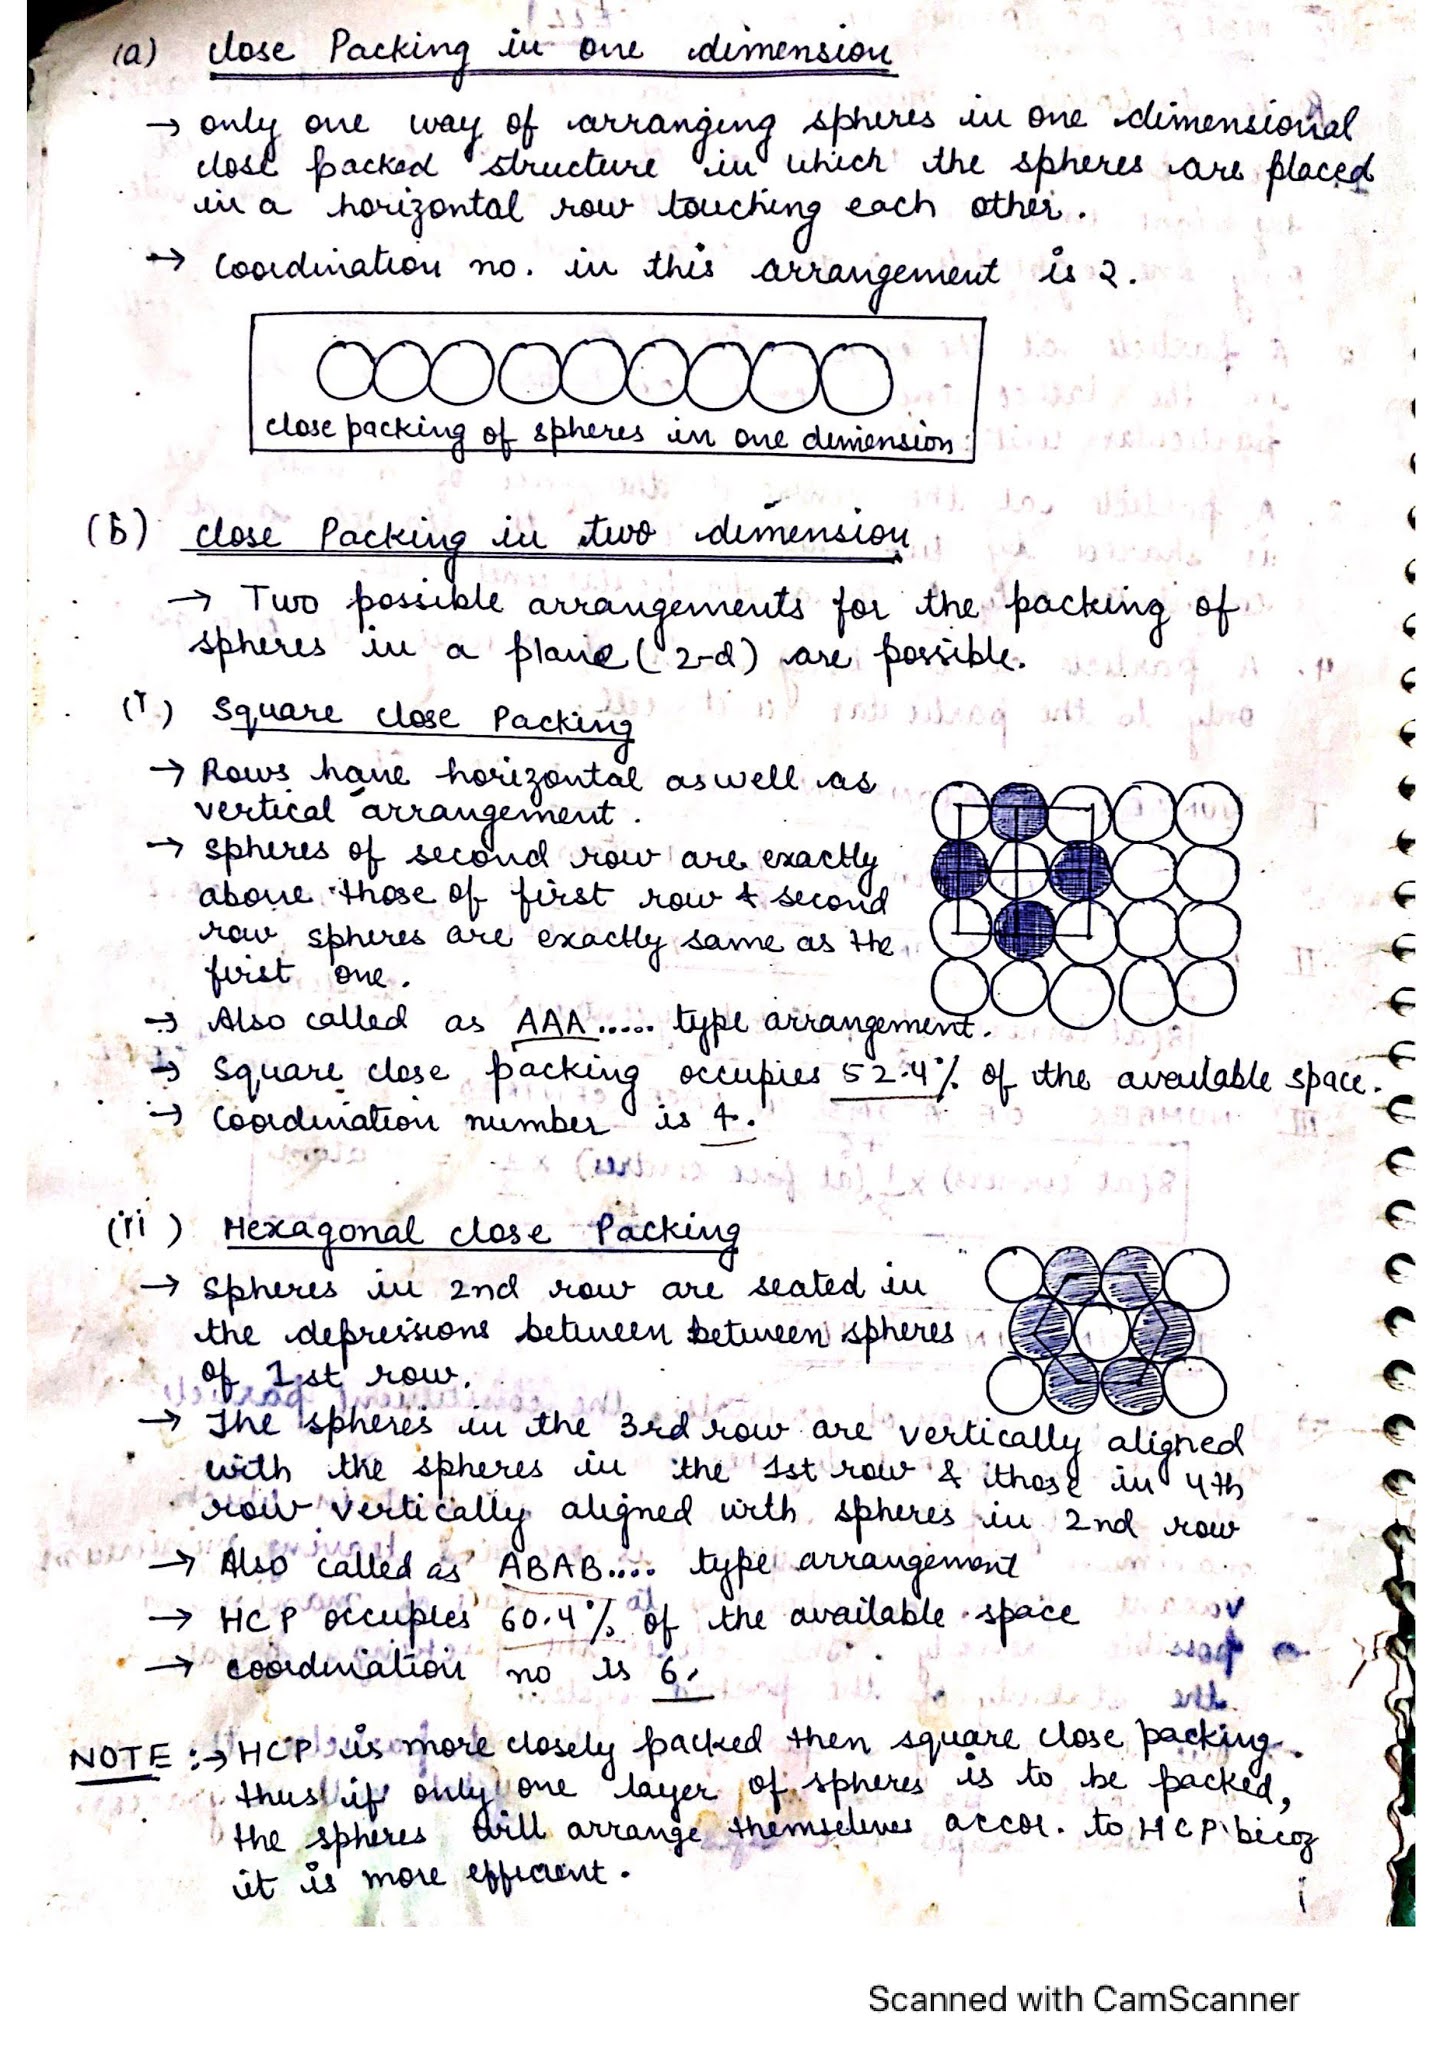 (a) close Packing in one dimension
→ only one way of arranging spheres in one dimensional
close packed structure in which the spheres are placed
in a horizontal row touching each other.
→ Coordination no. in this arrangement is 2.
close packing of spheres in one dimension
(b) close Packing in two dimension
→ Two possible arrangements for the packing of
spheres in a plane (2-d) are possible.
(i) Square close Packing
→ Rows have horizontal as well as
vertical arrangement.
→ spheres of second row are exactly
above those of first row & second
row spheres are exactly same as the
first one.
→ Also called as AAA..... type arrangement.
→ Square close packing occupies 52.4% of the available space.
→ Coordination number is 4.
(ii) Hexagonal close Packing
→ Spheres in 2nd row are seated in
the depressions between between spheres
of 1st row.
→ The spheres in the 3rd row are vertically aligned
with the spheres in the 1st row & those in 4th
row vertically aligned with spheres in 2nd row
→ Also called as ABAB.... type arrangement
→ HCP occupies 60.4% of the available space
→ coordination no is 6.
NOTE :→ HCP is more closely packed then square close packing.
thus if only one layer of spheres is to be packed,
the spheres will arrange themselves accor. to HCP bicoz
it is more efficient.
Scanned with CamScanner